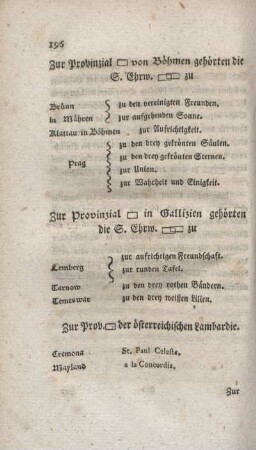 196
Zur Provinzial ▭ von Böhmen gehörten die
S. Ehrw. ▭▭ zu
Brünn } zu den vereinigten Freunden.
in Mähren } zur aufgehenden Sonne.
Klattau in Böhmen zur Aufrichtigkeit.
Prag } zu den drey gekrönten Säulen.
zu den drey gekrönten Sternen.
zur Union.
zur Wahrheit und Einigkeit.
Zur Provinzial ▭ in Gallizien gehörten
die S. Ehrw. ▭▭ zu
Lemberg } zur aufrichtigen Freundschaft.
zur runden Tafel.
Tarnow zu den drey rothen Bändern.
Temeswar zu den drey weißen Lilien.
Zur Prov. ▭ der österreichischen Lambardie.
Cremona St. Paul Celeste.
Mayland a la Concordia.
Zur